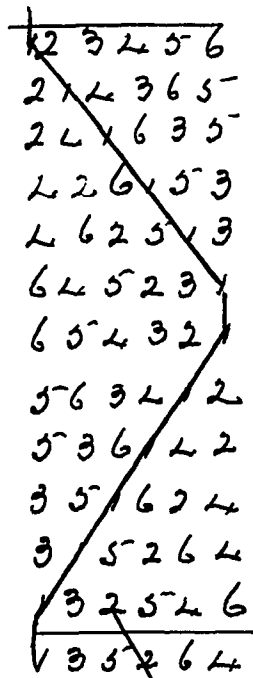 1 2 3 4 5 6
2 1 4 3 6 5
2 4 1 6 3 5
4 2 6 1 5 3
4 6 2 5 1 3
6 4 5 2 3 1
6 5 4 3 2 1
5 6 3 4 1 2
5 3 6 1 4 2
3 5 1 6 2 4
3 1 5 2 6 4
1 3 2 5 4 6
1 3 5 2 6 4